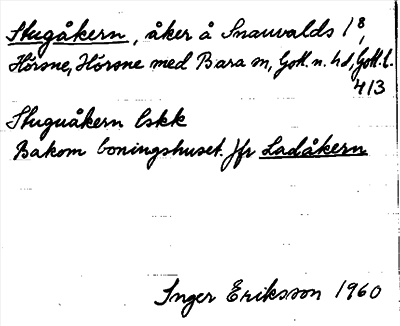 Stugåkern, åker å Snauvalds 1⁸,
Hörsne, Hörsne med Bara sn, Gotl. n. hd, Gotl. l.
413
Stuguåkern Eskk
Bakom boningshuset. Jfr Ladåkern
Inger Eriksson 1960